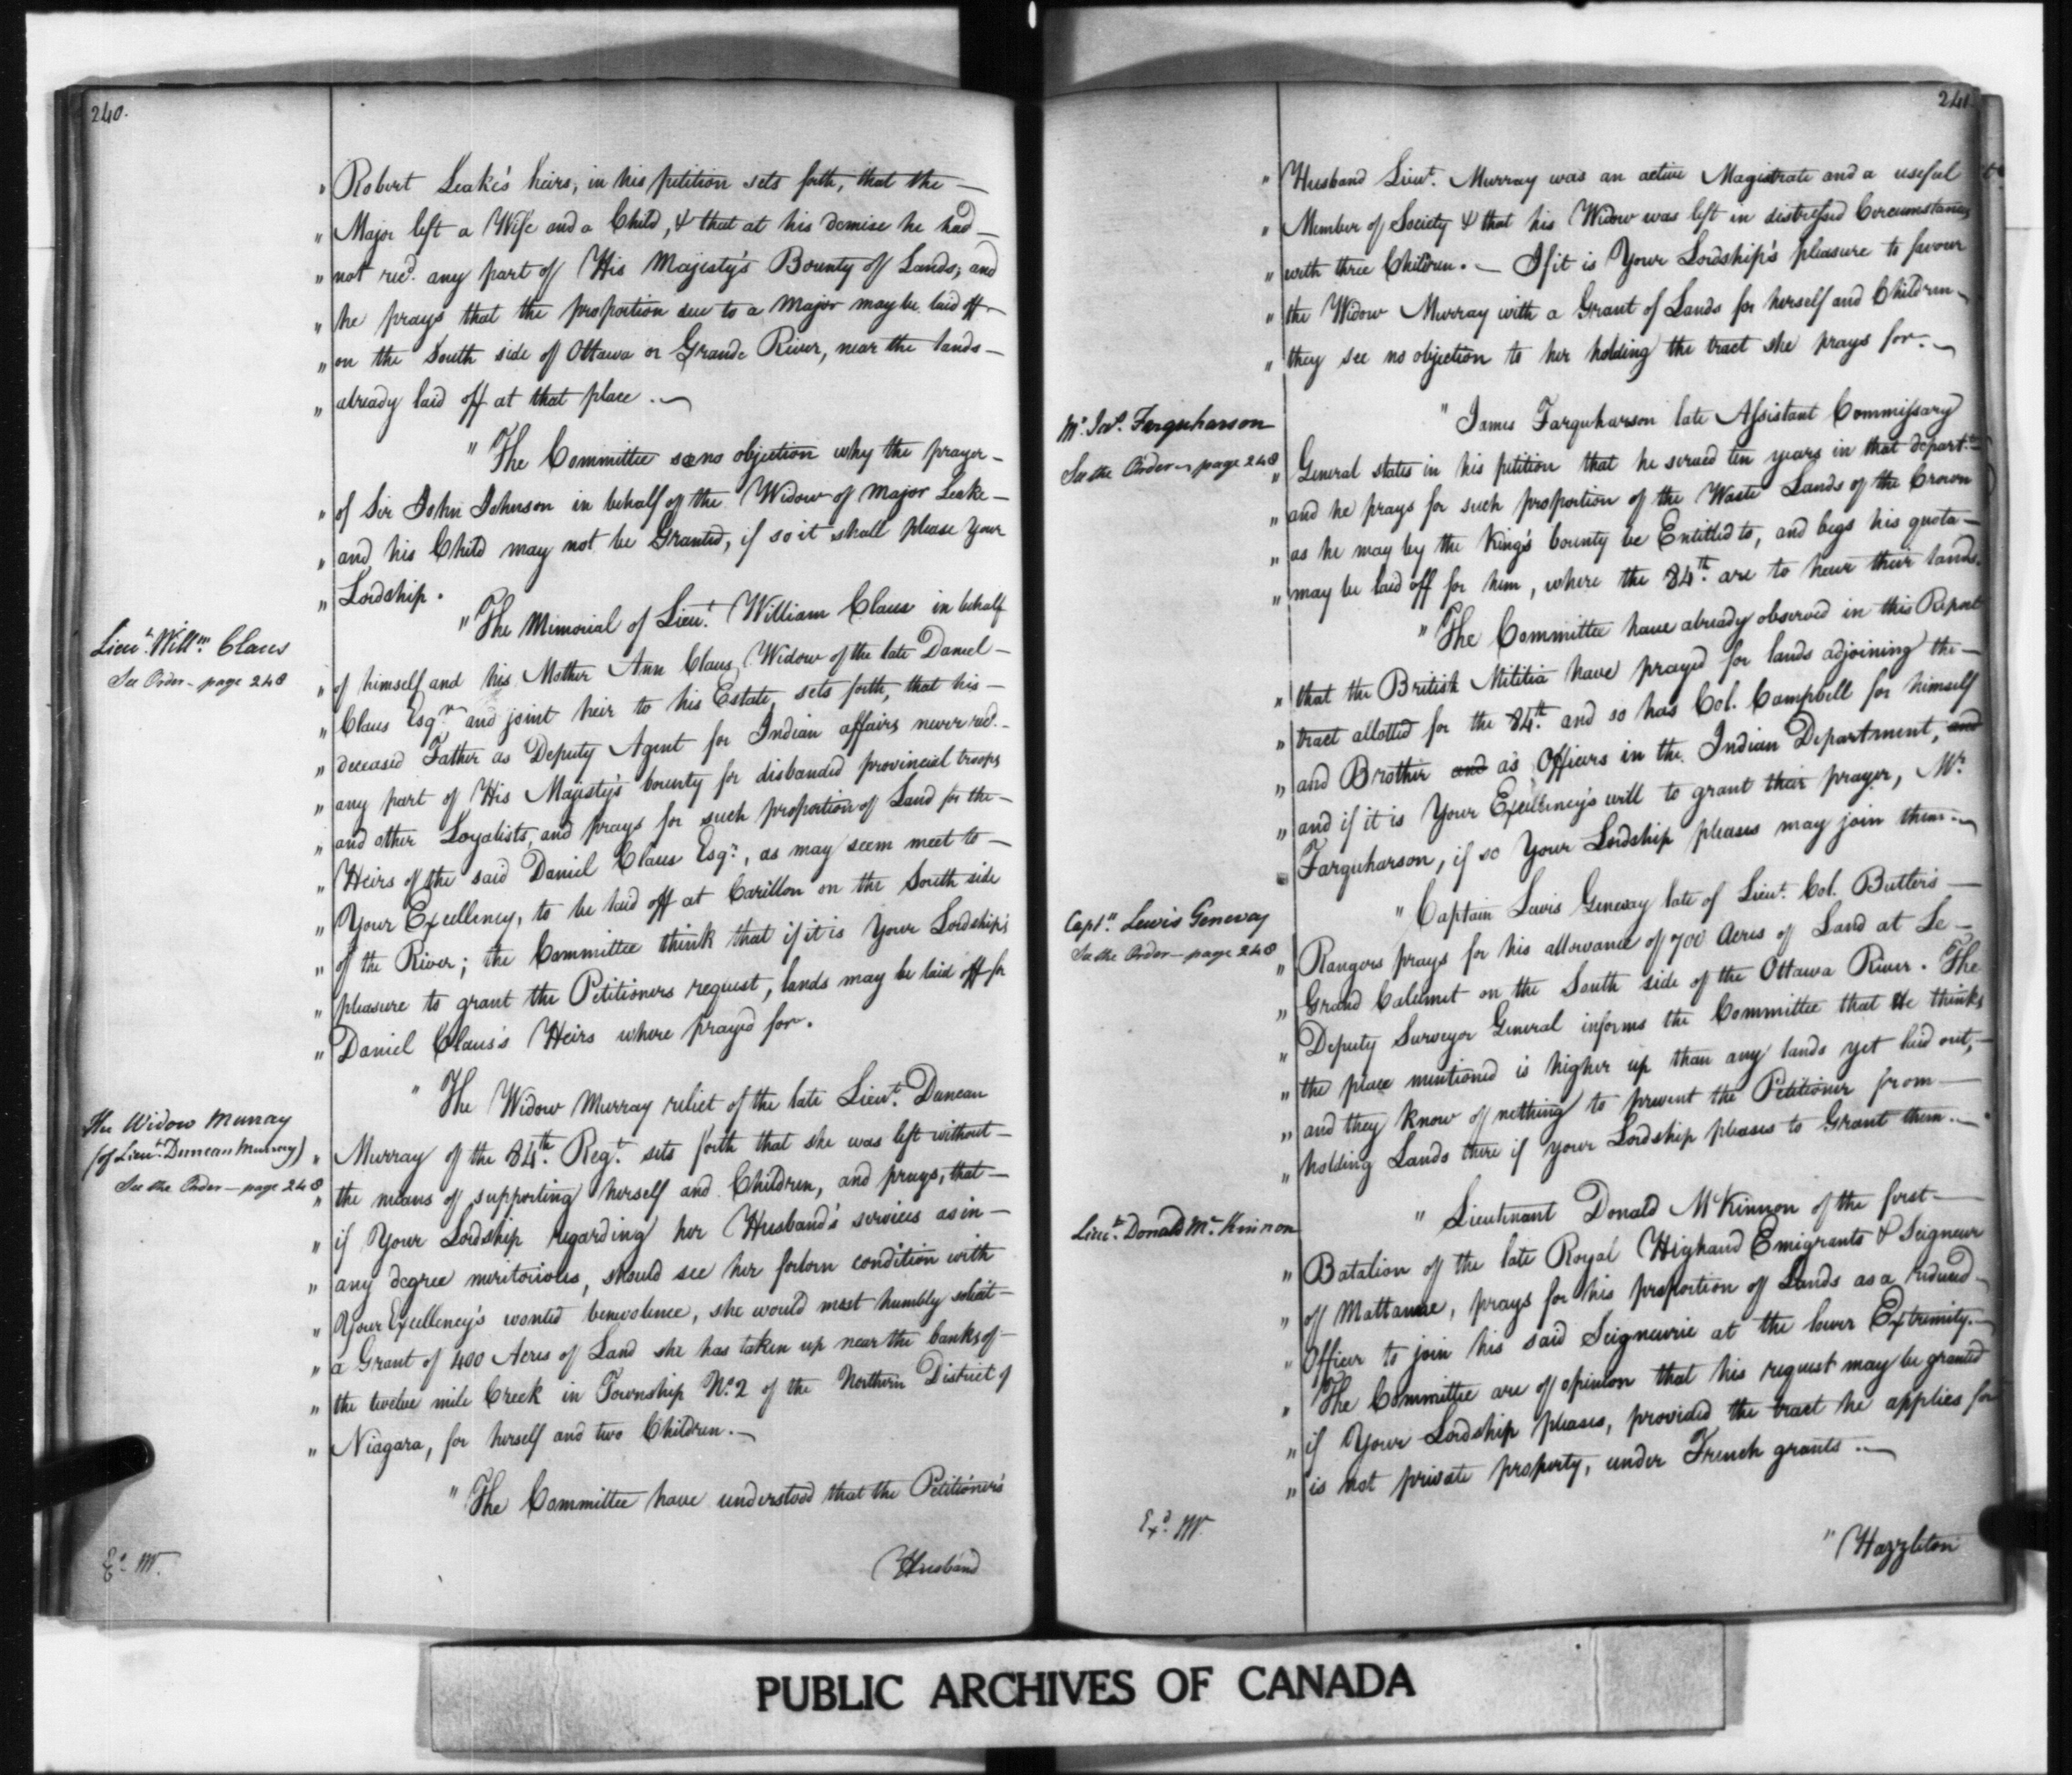 240.
" Robert Leake's heirs, in his petition sets forth, that the —
" Major left a Wife and a Child, & that at his demise he had —
" not recd. any part of His Majesty's Bounty of Lands; and
" he prays that the proportion due to a Major may be laid off —
" on the South side of Ottawa or Grande River, near the lands —
" already laid off at that place. —
" The Committee see no objection why the prayer —
" of Sir John Johnson in behalf of the Widow of Major Leake —
" and his Child may not be Granted, if so it shall please Your
" Lordship.
Lieut. Willm. Claus
See Order - page 248
" The Memorial of Lieut. William Claus in behalf
" of himself and his Mother Ann Claus, Widow of the late Daniel —
" Claus Esqr. and joint heir to his Estate, sets forth, that his —
" deceased Father as Deputy Agent for Indian affairs never recd. —
" any part of His Majesty's bounty for disbanded provincial troops
" and other Loyalists, and prays for such proportion of Land for the —
" Heirs of the said Daniel Claus Esqr., as may seem meet to —
" Your Excellency, to be laid off at Carillon on the South side
" of the River; the Committee think that if it is Your Lordship's
" pleasure to grant the Petitioners request, lands may be laid off for
" Daniel Claus's Heirs where prayed for.
The Widow Murray
(of Lieut. Duncan Murray)
See the Order — page 248
" The Widow Murray relict of the late Lieut. Duncan
" Murray of the 84th. Regt. sets forth that she was left without —
" the means of supporting herself and Children, and prays, that —
" if Your Lordship regarding her Husband's services as in —
" any degree meritorious, should see her forlorn condition with
" Your Excellency's wonted benevolence, she would most humbly solicit —
" a Grant of 400 Acres of Land she has taken up near the banks of —
" the twelve mile Creek in Township No. 2 of the Northern District of
" Niagara, for herself and two Children. —
" The Committee have understood that the Petitioner's
Husband
241.
" Husband Lieut. Murray was an active Magistrate and a useful
" Member of Society & that his Widow was left in distressed Circumstances
" with three Children. — If it is Your Lordship's pleasure to favour
" the Widow Murray with a Grant of Lands for herself and Children —
" they see no objection to her holding the tract she prays for. —
Mr. Jas. Farquharson
See the Order — page 248
" James Farquharson late Assistant Commissary
" General states in his petition that he served ten years in that departt.
" and he prays for such proportion of the Waste Lands of the Crown
" as he may by the King's bounty be Entitled to, and begs his quota —
" may be laid off for him, where the 84th. are to have their lands.
" The Committee have already observed in this Report
" that the British Militia have prayed for lands adjoining the —
" tract allotted for the 84th. and so has Col. Campbell for himself
" and Brother and as Officers in the Indian Department, and
" and if it is Your Excellency's will to grant their prayer, Mr.
" Farquharson, if so Your Lordship pleases may join them. —
Captn. Lewis Geneway
See the Order — page 248
" Captain Lewis Geneway late of Lieut. Col. Butler's —
" Rangers prays for his allowance of 700 Acres of Land at Le —
" Grand Calumet on the South side of the Ottawa River. The
" Deputy Surveyor General informs the Committee that He thinks
" the place mentioned is higher up than any lands yet laid out, —
" and they know of nothing to prevent the Petitioner from —
" holding Lands there if your Lordship pleases to Grant them. —
Lieut. Donald McKinnon
" Lieutenant Donald McKinnon of the first —
" Batalion of the late Royal Highand Emigrants & Seigneur
" of Mattanne, prays for his proportion of Lands as a reduced —
" Officer to join his said Seigneurie at the lower Extremity. —
" The Committee are of opinion that his request may be granted
" if Your Lordship pleases, provided the tract he applies for
" is not private property, under French grants. —
Exd. W.
" Hazzleton
PUBLIC ARCHIVES OF CANADA